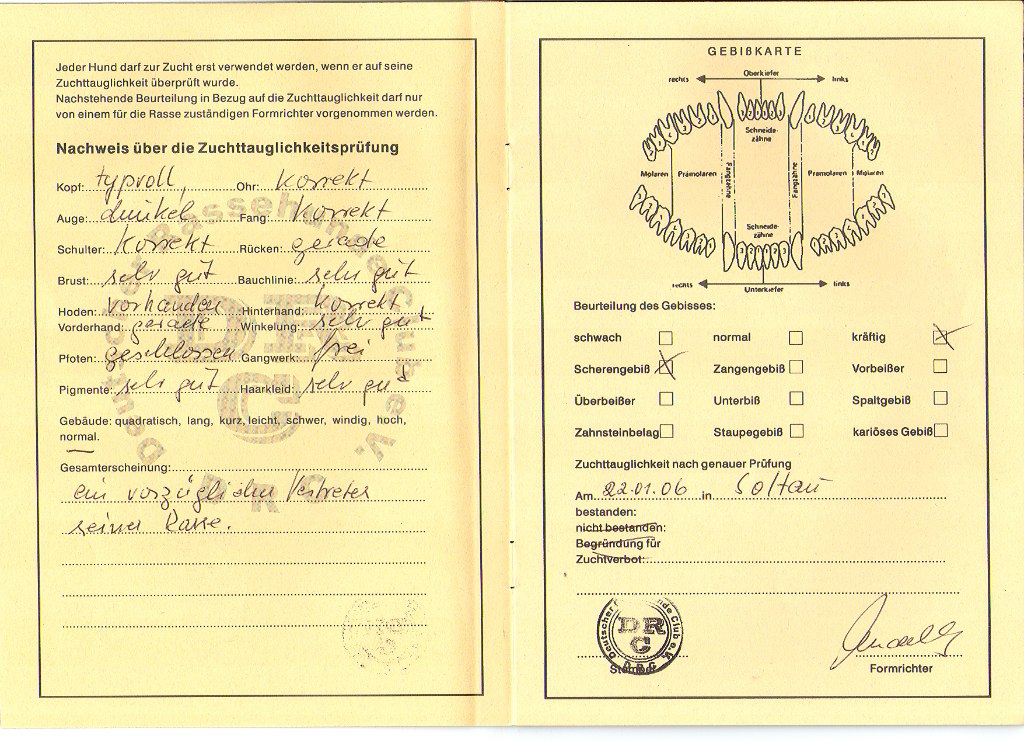 Jeder Hund darf zur Zucht erst verwendet werden, wenn er auf seine
Zuchttauglichkeit überprüft wurde.
Nachstehende Beurteilung in Bezug auf die Zuchttauglichkeit darf nur
von einem für die Rasse zuständigen Formrichter vorgenommen werden.
Nachweis über die Zuchttauglichkeitsprüfung
Kopf: typvoll, Ohr: korrekt
Auge: dunkel Fang: korrekt
Schulter: korrekt Rücken: gerade
Brust: sehr gut Bauchlinie: sehr gut
Hoden: vorhanden Hinterhand: korrekt
Vorderhand: gerade Winkelung: sehr gut
Pfoten: geschlossen Gangwerk: frei
Pigmente: sehr gut Haarkleid: sehr gut
Gebäude: quadratisch, lang, kurz, leicht, schwer, windig, hoch,
normal.
Gesamterscheinung:
ein vorzüglicher Vertreter
seiner Rasse.
GEBIßKARTE
rechts Oberkiefer links
Schneide-
zähne
Molaren Prämolaren Fangzähne Fangzähne Prämolaren Molaren
Schneide-
zähne
rechts Unterkiefer links
Beurteilung des Gebisses:
schwach normal kräftig
Scherengebiß Zangengebiß Vorbeißer
Überbeißer Unterbiß Spaltgebiß
Zahnsteinbelag Staupegebiß kariöses Gebiß
Zuchttauglichkeit nach genauer Prüfung
Am 22.01.06 in Soltau
bestanden:
nicht bestanden:
Begründung für
Zuchtverbot:
DRC
DRC
Stempel Formrichter